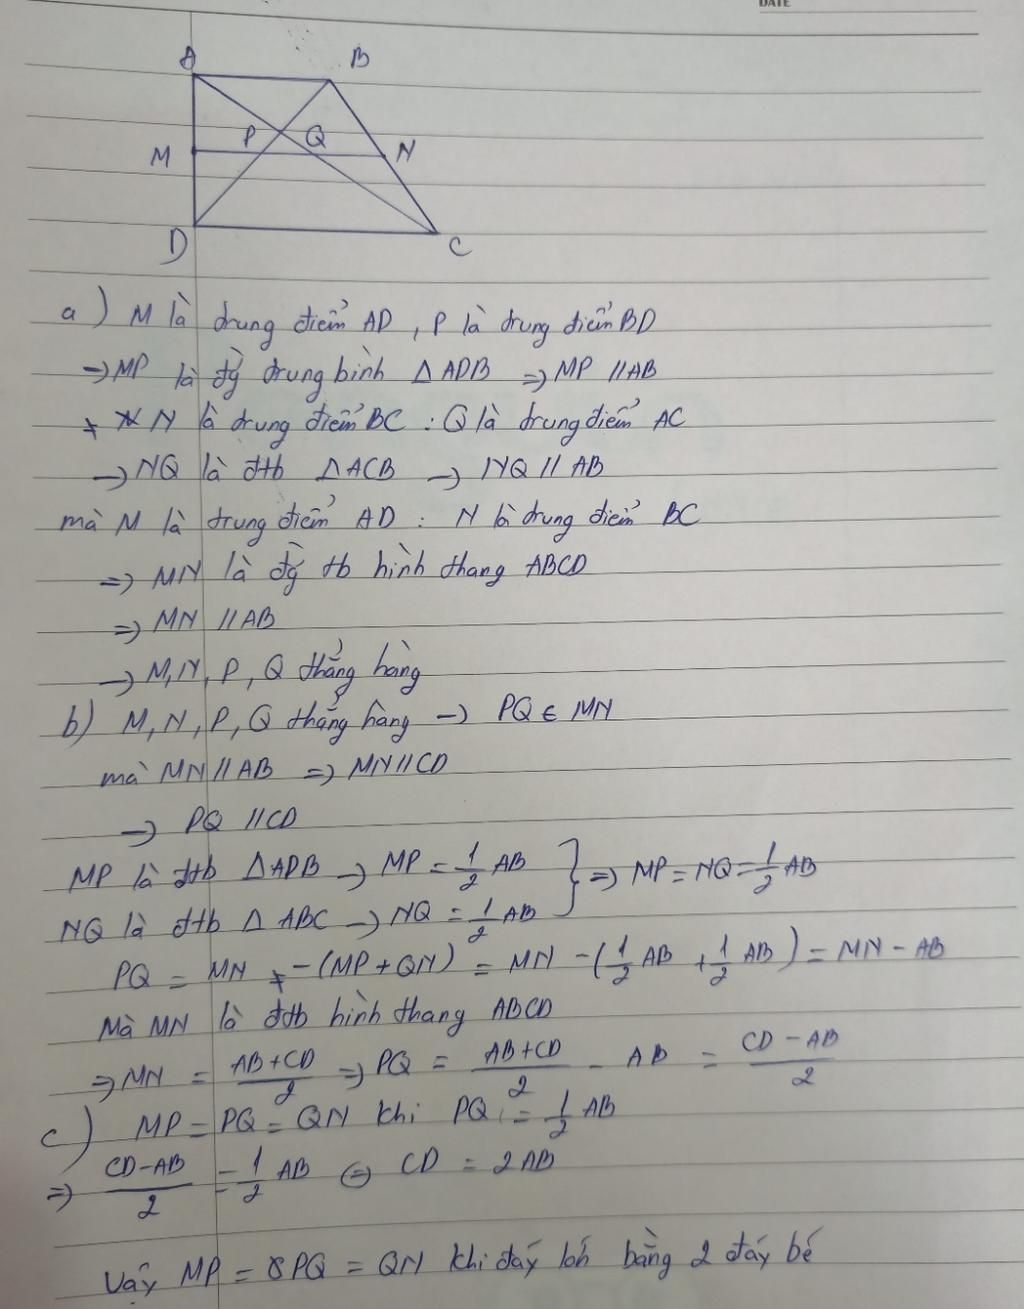 DATE
A B
P Q
M N
D C
a) M là trung điểm AD, P là trung điểm BD
→ MP là đg trung bình Δ ADB ⇒ MP // AB
+ N là trung điểm BC : Q là trung điểm AC
→ NQ là đtb Δ ACB → NQ // AB
mà M là trung điểm AD : N là trung điểm BC
⇒ MN là đg tb hình thang ABCD
⇒ MN // AB
→ M, N, P, Q thẳng hàng
b) M, N, P, Q thẳng hàng → PQ ∈ MN
mà MN // AB ⇒ MN // CD
→ PQ // CD
MP là đtb Δ ADB → MP = 1/2 AB } ⇒ MP = NQ = 1/2 AB
NQ là đtb Δ ABC → NQ = 1/2 AB
PQ = MN - (MP + QN) = MN - (1/2 AB + 1/2 AB) = MN - AB
Mà MN là đtb hình thang ABCD
⇒ MN = (AB + CD)/2 ⇒ PQ = (AB + CD)/2 - AB = (CD - AB)/2
c) MP = PQ = QN khi PQ = 1/2 AB
⇒ (CD - AB)/2 = 1/2 AB ⇔ CD = 2AB
Vậy MP = PQ = QN khi đáy lớn bằng 2 đáy bé